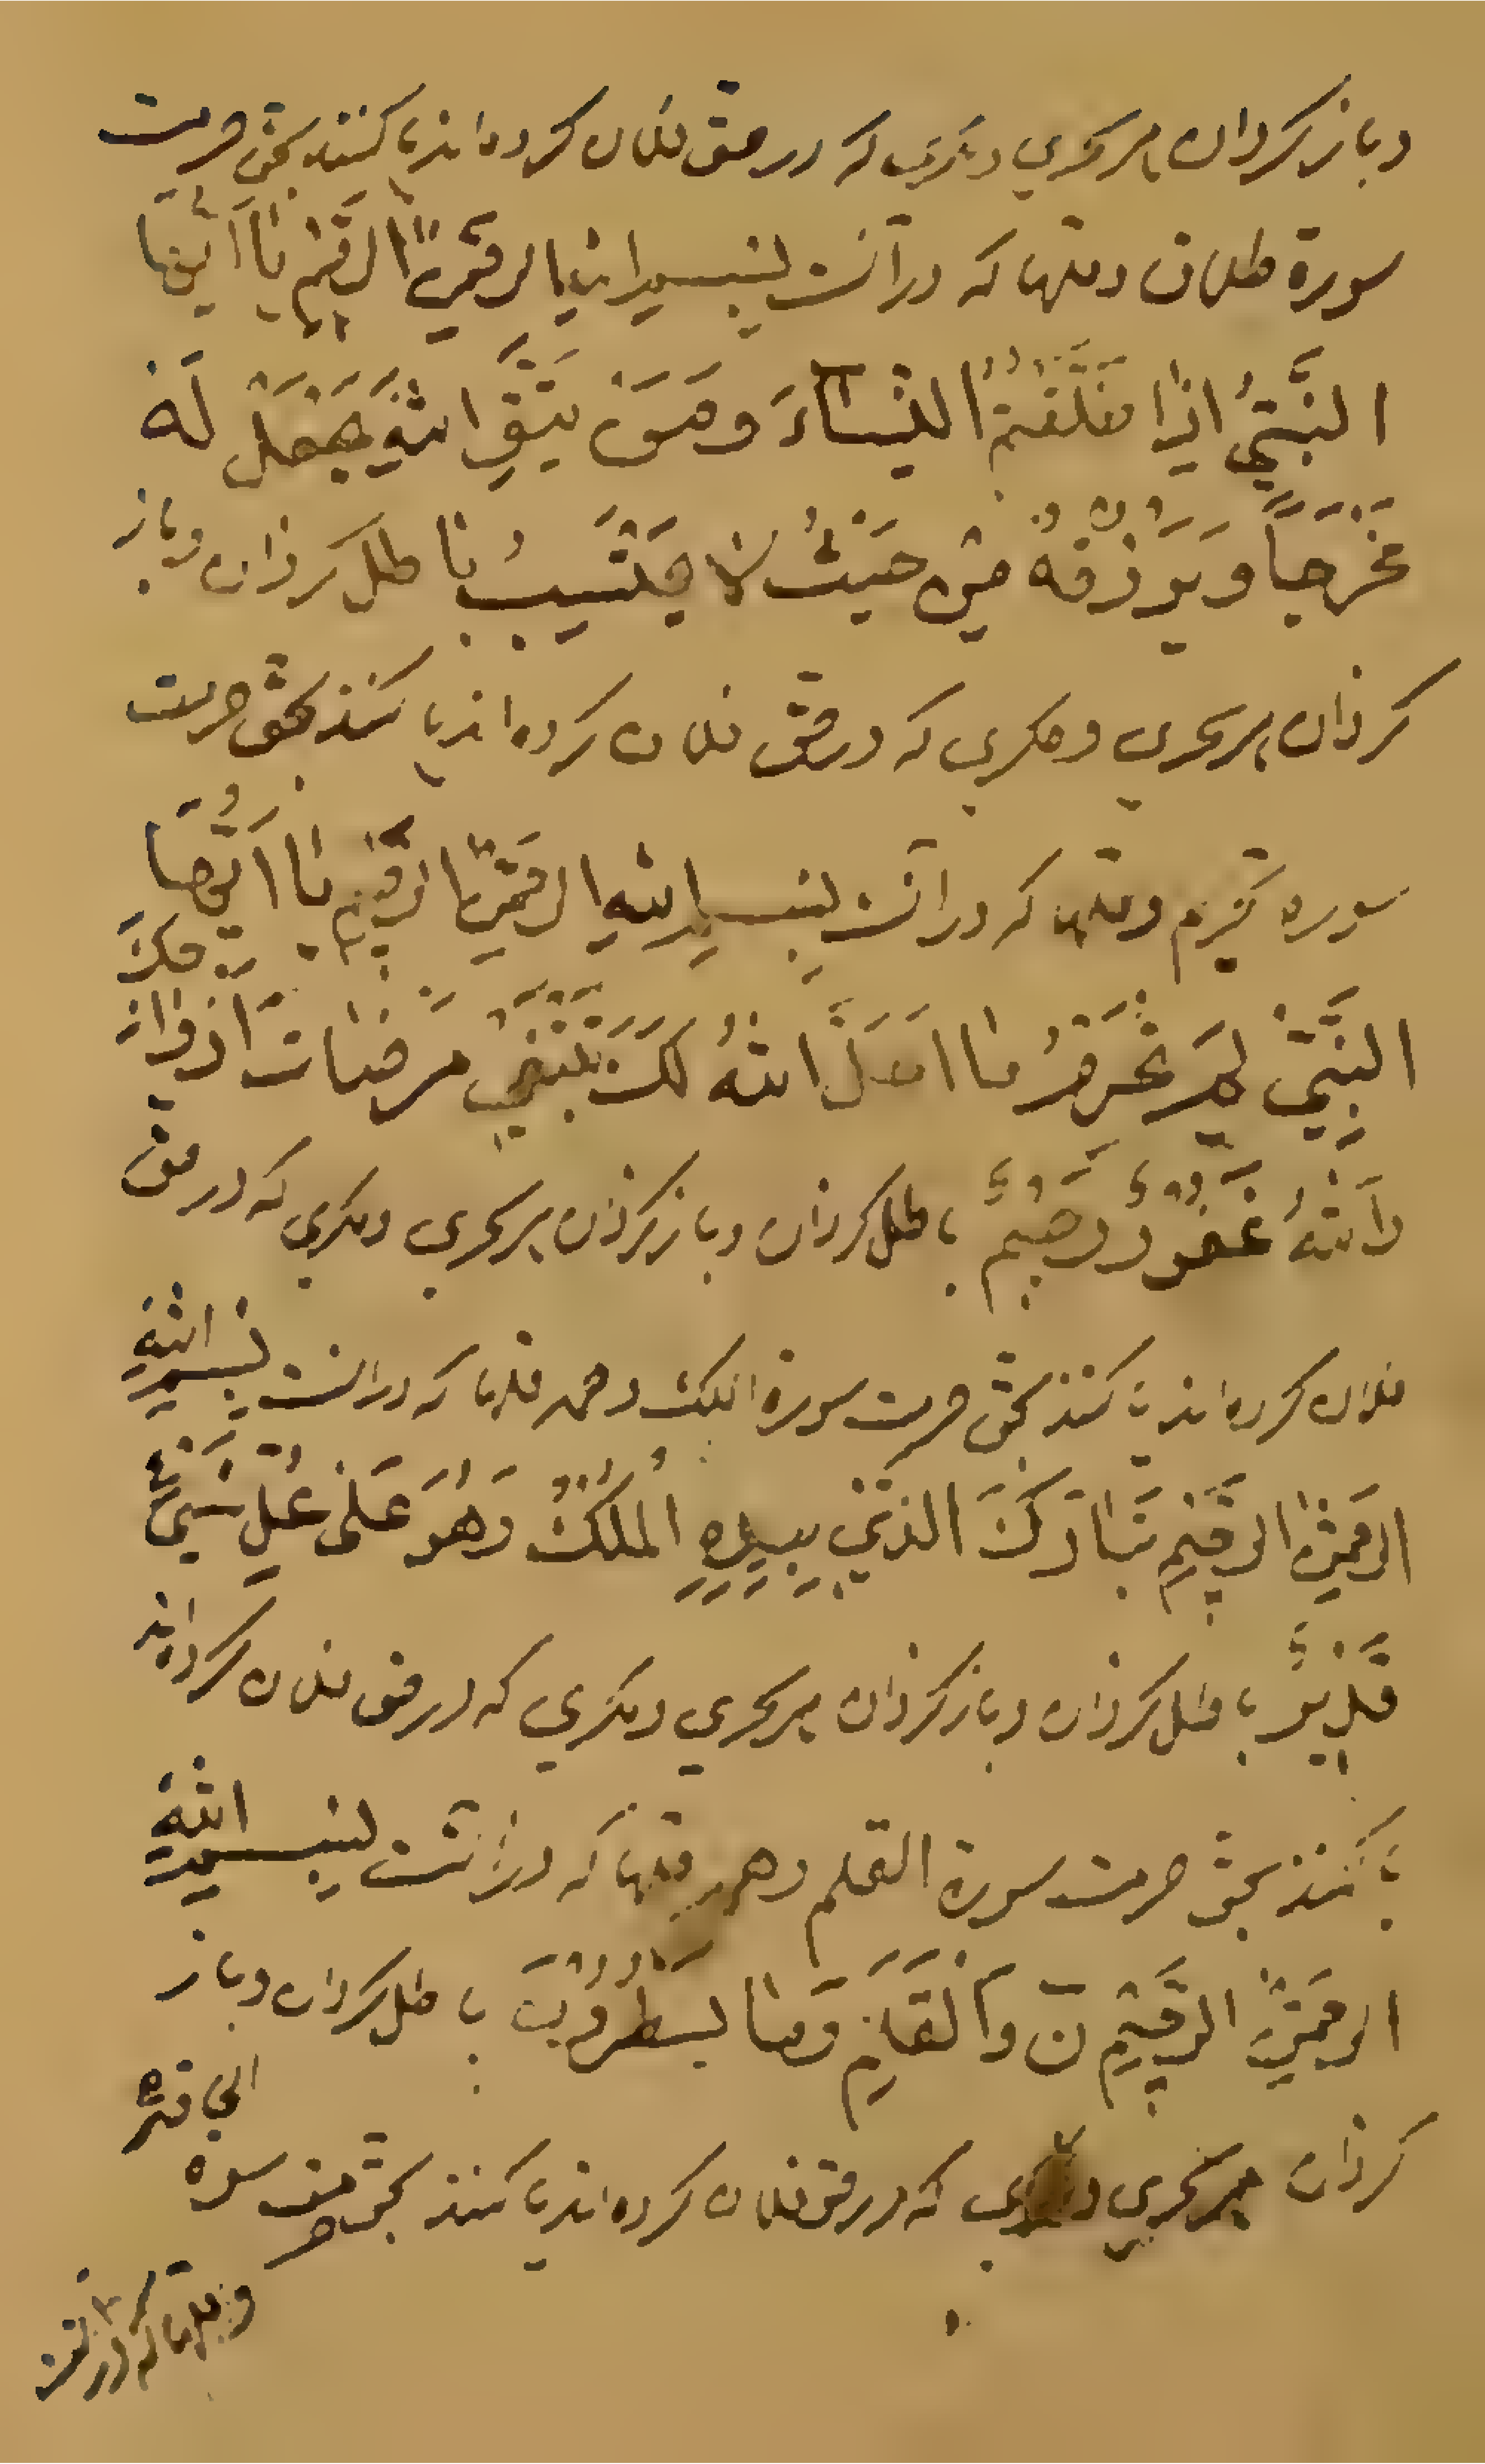 و باز کردان هر سحری و مکری که در حق فلان کرده اند یا کنند بحق حرمت
سورة طلاق و قلها که در آنست بِسْمِ اللهِ الرَّحْمٰنِ الرَّحِیْمِ یَا اَیُّهَا
النَّبِیُّ اِذَا طَلَّقْتُمُ النِّسَاءَ وَمَنْ یَتَّقِ اللهَ یَجْعَلْ لَهُ
مَخْرَجًا وَیَرْزُقْهُ مِنْ حَیْثُ لَا یَحْتَسِبُ باطل کرذان و باز
کرذان هر سحری و مکری که در حق فلان کرده اند یا کنند بحق حرمت
سوره تحریم و قلها که در آنست بِسْمِ اللهِ الرَّحْمٰنِ الرَّحِیْمِ یَا اَیُّهَا
النَّبِیُّ لِمَ تُحَرِّمُ مَا اَحَلَّ اللهُ لَكَ تَبْتَغِیْ مَرْضَاتَ اَزْوَاجِكَ
وَاللهُ غَفُوْرٌ رَحِیْمٌ باطل کرذان و باز کرذان هر سحری و مکری که در حق
فلان کرده اند یا کنند بحق حرمت سورة الملك و هر قلها که در انست بِسْمِ اللهِ
الرَّحْمٰنِ الرَّحِیْمِ تَبَارَكَ الَّذِیْ بِیَدِهِ الْمُلْكُ وَهُوَ عَلٰی كُلِّ شَیْءٍ
قَدِیْرٌ باطل کرذان و باز کرذان هر سحری و مکری که در حق فلان کرده اند
یا کنند بحق حرمت سورة القلم و هر قلها که در آنست بِسْمِ اللهِ
الرَّحْمٰنِ الرَّحِیْمِ نٓ وَالْقَلَمِ وَمَا یَسْطُرُوْنَ باطل کردان و باز
کرذان هر سحری و مکری که در حق فلان کرده اند یا کنند بحق حرمت سورة الحاقه
و قلها که در آنست